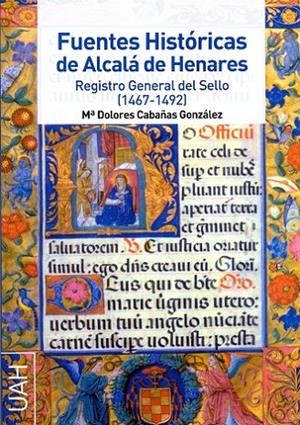 Fuentes Históricas
de Alcalá de Henares
Registro General del Sello
(1467-1492)
Mª Dolores Cabañas González
o Officiũ
rate celi de
sup et nubeſ
pluant iustũ:
aperiat terra
et gminet
saluatorem. V. Et iusticia oriatur
simul: ego dñs creaui eũ. Glori.
Deus qui de bte Oro.
marie ũginis utero:
uerbum tuũ angelo nũciãte
carnẽ suscipe uoluisti: p̃sta
UAH